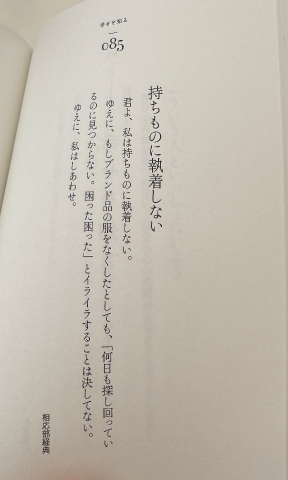 幸せを知る
085
持ちものに執着しない
君よ、私は持ちものに執着しない。
ゆえに、もしブランド品の服をなくしたとしても、「何日も探し回ってい
るのに見つからない。困った困った」とイライラすることは決してない。
ゆえに、私はしあわせ。
相応部経典